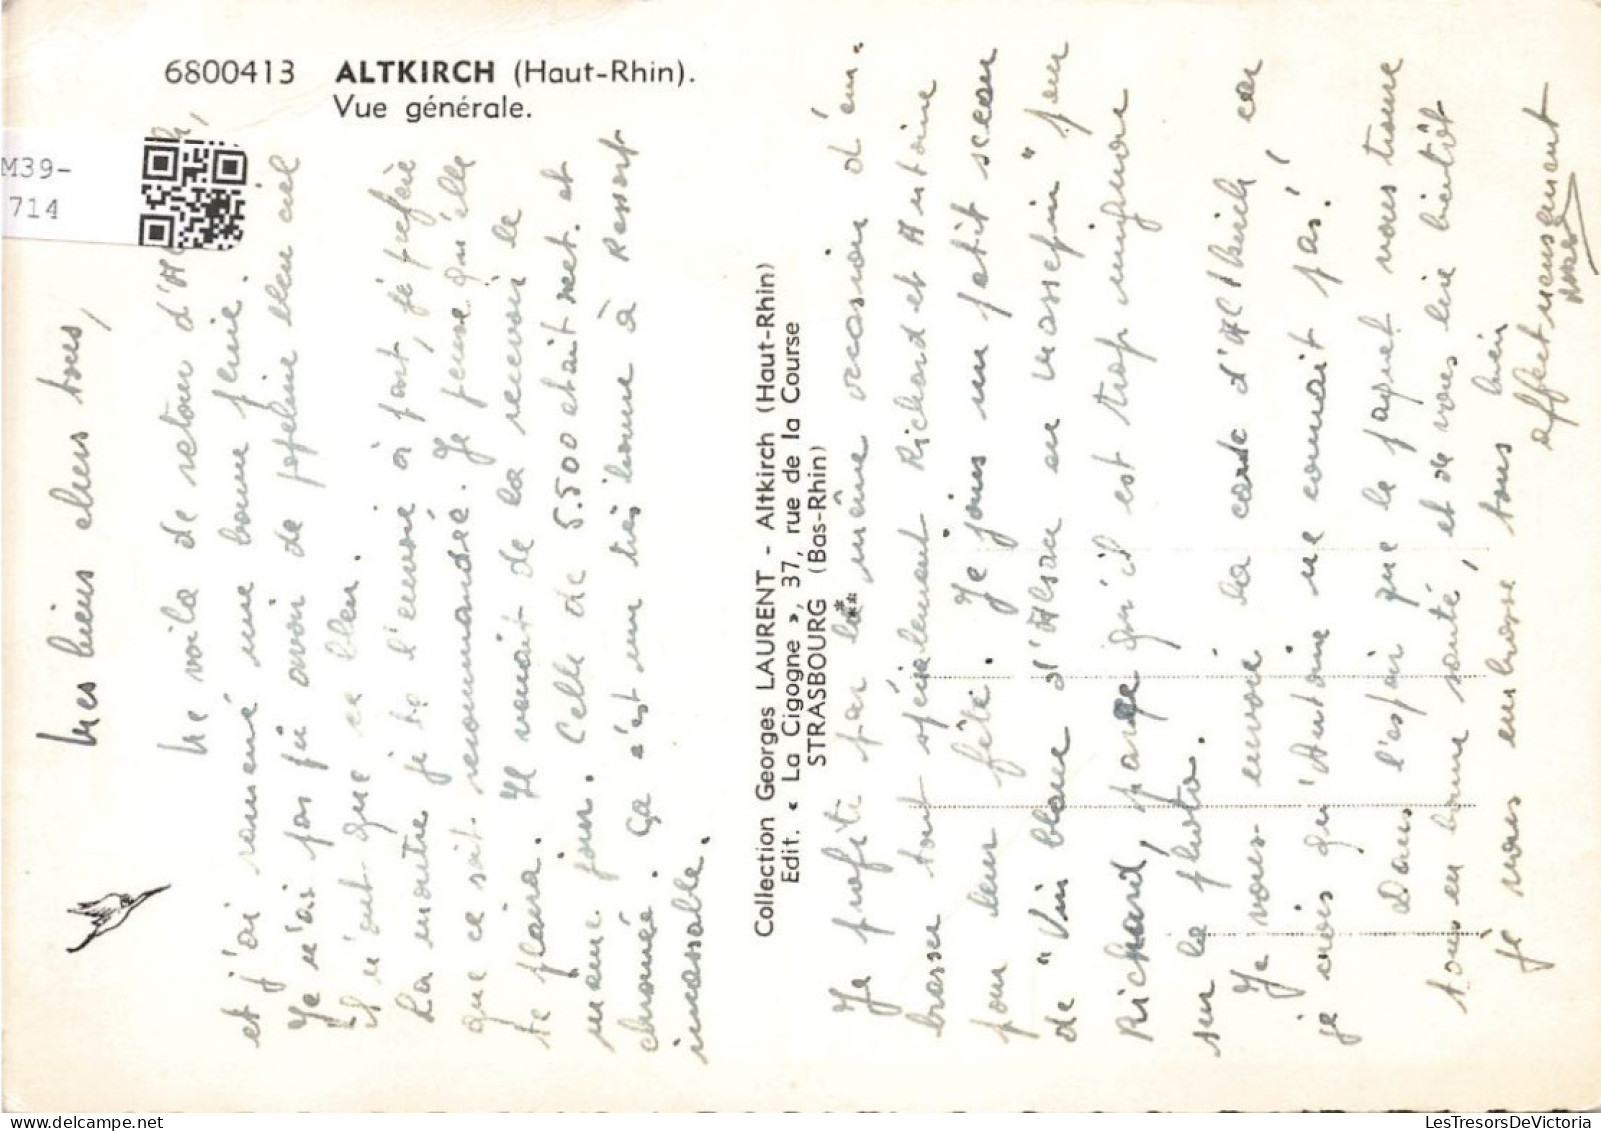 6800413 ALTKIRCH (Haut-Rhin).
Vue générale.
M39-
714
Mes biens chers tous,
Me voila de retour
et j'ai ramené une bonne pluie.
Je n'ai pas pû avoir de popeline bleu ciel
Il n'ont que ce bleu.
La montre je te l'envoie à part, je préfère
que ce soit recommandé. Je pense qu'elle
te plaira. Il venait de la recevoir le
meme jour. Celle de 5.500 était rect. et
chromée. Ça c'est une très bonne à Ressort
incassable.
Collection Georges LAURENT - Altkirch (Haut-Rhin)
Edit. « La Cigogne », 37, rue de la Course
STRASBOURG (Bas-Rhin)
Je profite par la même occasion d'em-
brasser tout spécialement Richard et Antoine
pour leur fête. Je joins un petit sceau
de "Vin blanc d'Alsace en massepin" pour
Richard, parce qu'il est trop mignon
sur la photo.
Je vous envoie la carte d'Altkirch car
je crois qu'Antoine ne connait pas!
Dans l'espoir que le paquet vous trouve
tous en bonne santé, et de vous lire bientôt
je vous embrasse tous bien
affectueusement
LesTresorsDeVictoria